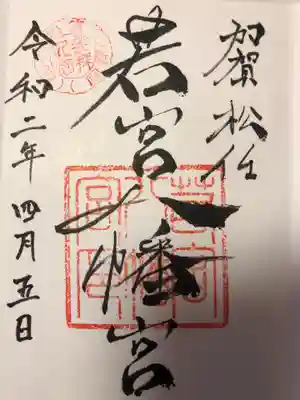 加賀松任
若宮八幡宮
令和二年四月五日